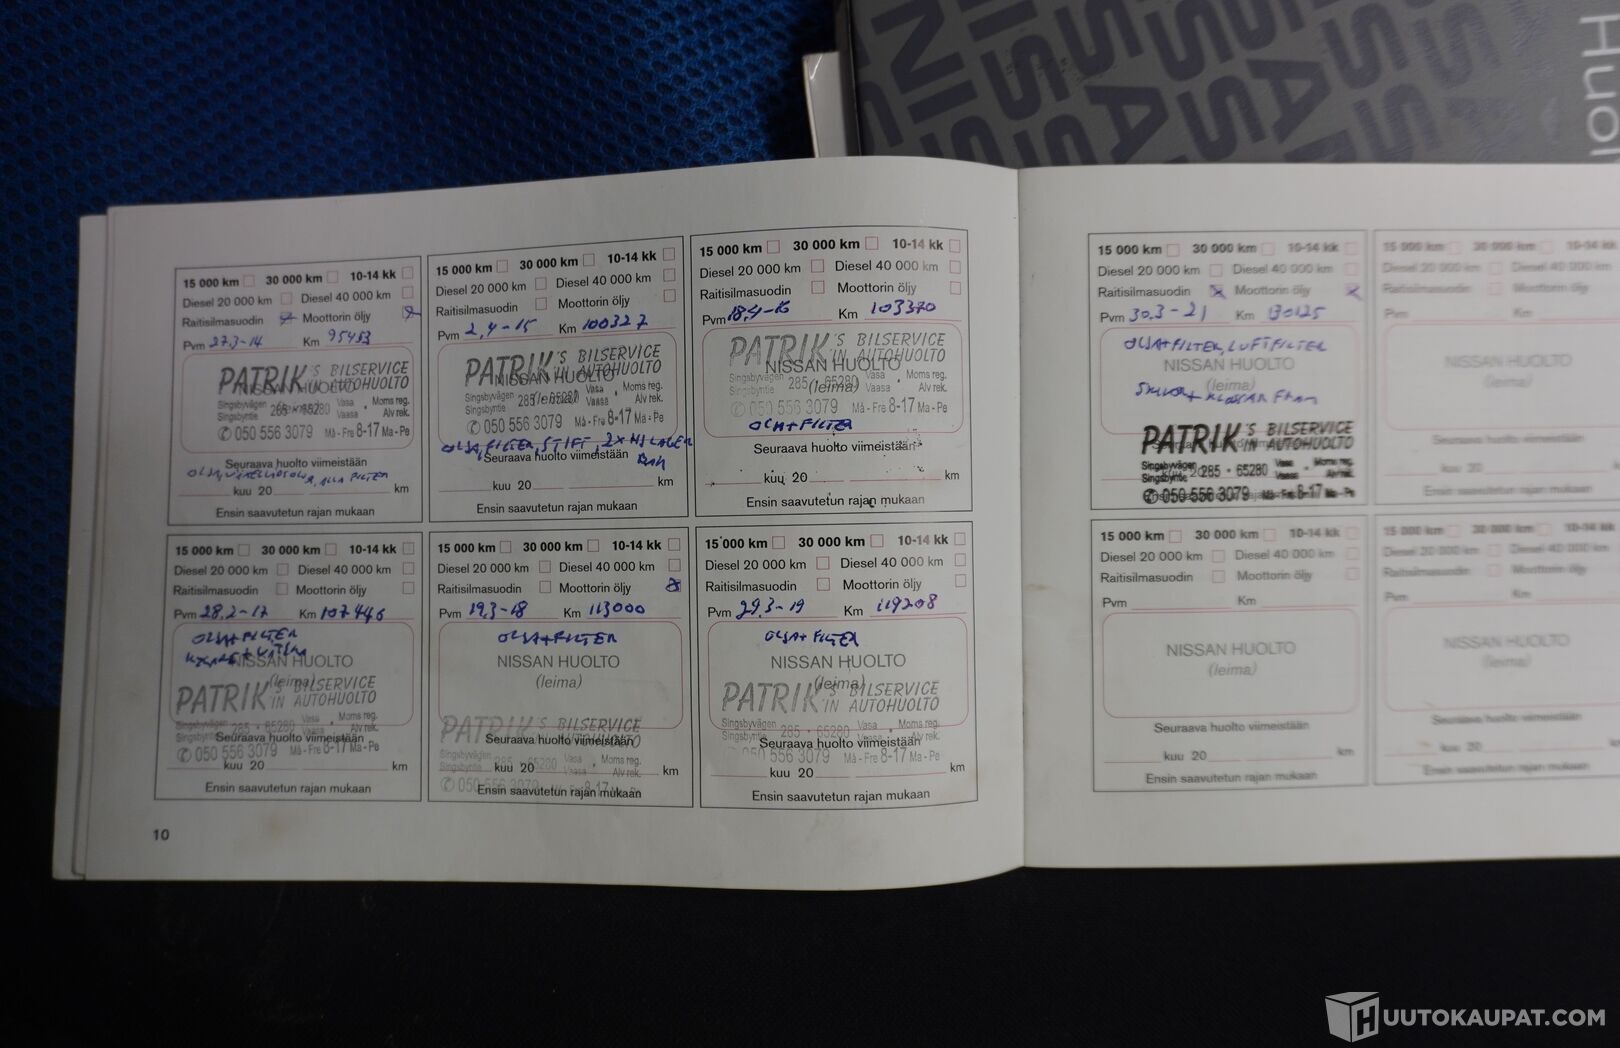 NISSAN
Huol
15 000 km 30 000 km 10-14 kk
Diesel 20 000 km Diesel 40 000 km
Raitisilmasuodin Moottorin öljy
Pvm 27.3-14 Km 95453
PATRIK'S BILSERVICE
NISSAN HUOLTO
'IN AUTOHUOLTO
(leima)
Singsbyvägen 285 • 65280 Vasa • Moms reg.
Singsbyntie Vaasa Alv rek.
✆ 050 556 3079 Må - Fre 8-17 Ma - Pe
Seuraava huolto viimeistään
OLJA, FILTER
kuu 20 km
Ensin saavutetun rajan mukaan
15 000 km 30 000 km 10-14 kk
Diesel 20 000 km Diesel 40 000 km
Raitisilmasuodin Moottorin öljy
Pvm 2,4-15 Km 100327
PATRIK'S BILSERVICE
'IN AUTOHUOLTO
NISSAN HUOLTO
(leima)
Singsbyvägen 285 • 65280 Vasa • Moms reg.
Singsbyntie Vaasa Alv rek.
✆ 050 556 3079 Må - Fre 8-17 Ma - Pe
OLJA, FILTER, STIFT, 2X HJLAGER
BAK
Seuraava huolto viimeistään
kuu 20 km
Ensin saavutetun rajan mukaan
15 000 km 30 000 km 10-14 kk
Diesel 20 000 km Diesel 40 000 km
Raitisilmasuodin Moottorin öljy
Pvm 18,4-16 Km 103370
PATRIK'S BILSERVICE
'IN AUTOHUOLTO
NISSAN HUOLTO
(leima)
Singsbyvägen 285 • 65280 Vasa • Moms reg.
Singsbyntie Vaasa Alv rek.
✆ 050 556 3079 Må - Fre 8-17 Ma - Pe
OLJA+FILTER
Seuraava huolto viimeistään
kuu 20 km
Ensin saavutetun rajan mukaan
15 000 km 30 000 km 10-14 kk
Diesel 20 000 km Diesel 40 000 km
Raitisilmasuodin Moottorin öljy
Pvm 28,2-17 Km 107446
OLJA+FILTER
NISSAN HUOLTO
(leima)
PATRIK'S BILSERVICE
'IN AUTOHUOLTO
Singsbyvägen 285 • 65280 Vasa Moms reg.
Singsbyntie Vaasa Alv rek.
Seuraava huolto viimeistään
✆ 050 556 3079 Må - Fre 8-17 Ma - Pe
kuu 20 km
Ensin saavutetun rajan mukaan
15 000 km 30 000 km 10-14 kk
Diesel 20 000 km Diesel 40 000 km
Raitisilmasuodin Moottorin öljy
Pvm 19,3-18 Km 113000
OLJA+FILTER
NISSAN HUOLTO
(leima)
PATRIK'S BILSERVICE
'IN AUTOHUOLTO
Seuraava huolto viimeistään
Singsbyvägen 285 • 65280 Vasa Moms reg.
Singsbyntie Vaasa Alv rek.
kuu 20 km
✆ 050 556 3079 Må - Fre 8-17 Ma - Pe
Ensin saavutetun rajan mukaan
15 000 km 30 000 km 10-14 kk
Diesel 20 000 km Diesel 40 000 km
Raitisilmasuodin Moottorin öljy
Pvm 29,3-19 Km 119208
OLJA+FILTER
NISSAN HUOLTO
(leima)
PATRIK'S BILSERVICE
'IN AUTOHUOLTO
Singsbyvägen 285 • 65280 Vasa Moms reg.
Singsbyntie Vaasa Alv rek.
Seuraava huolto viimeistään
050 556 3079 Må - Fre 8-17 Ma - Pe
kuu 20 km
Ensin saavutetun rajan mukaan
10
15 000 km 30 000 km 10-14 kk
Diesel 20 000 km Diesel 40 000 km
Raitisilmasuodin Moottorin öljy
Pvm 30.3-21 Km 130125
OLJA+FILTER, LUFTFILTER
NISSAN HUOLTO
(leima)
SKIVOR+KLOSSAR FRAM
PATRIK'S BILSERVICE
'IN AUTOHUOLTO
Singsbyvägen 285 • 65280 Vasa Moms reg.
Singsbyntie Vaasa Alv rek.
✆ 050 556 3079 Må - Fre 8-17 Ma - Pe
15 000 km 30 000 km 10-14 kk
Diesel 20 000 km Diesel 40 000
Raitisilmasuodin Moottorin öljy
Pvm Km
NISSAN HUOLTO
(leima)
Seuraava huolto viimeistään
kuu 20
Ensin saavutetun rajan mukaan
15 000 km 30 000 km 10-14 kk
Diesel 20 000 km Diesel 40 000 km
Raitisilmasuodin Moottorin öljy
Pvm Km
NISSAN HUOLTO
(leima)
Seuraava huolto viimeistään
kuu 20 km
Ensin saavutetun rajan mukaan
15 000 km 30 000 km 10-14 kk
Diesel 20 000 km Diesel 40 000 km
Raitisilmasuodin Moottorin öljy
Pvm Km
NISSAN HUOLTO
(leima)
Seuraava huolto viimeistään
kuu 20
Ensin saavutetun rajan mukaan
HUUTOKAUPAT.COM